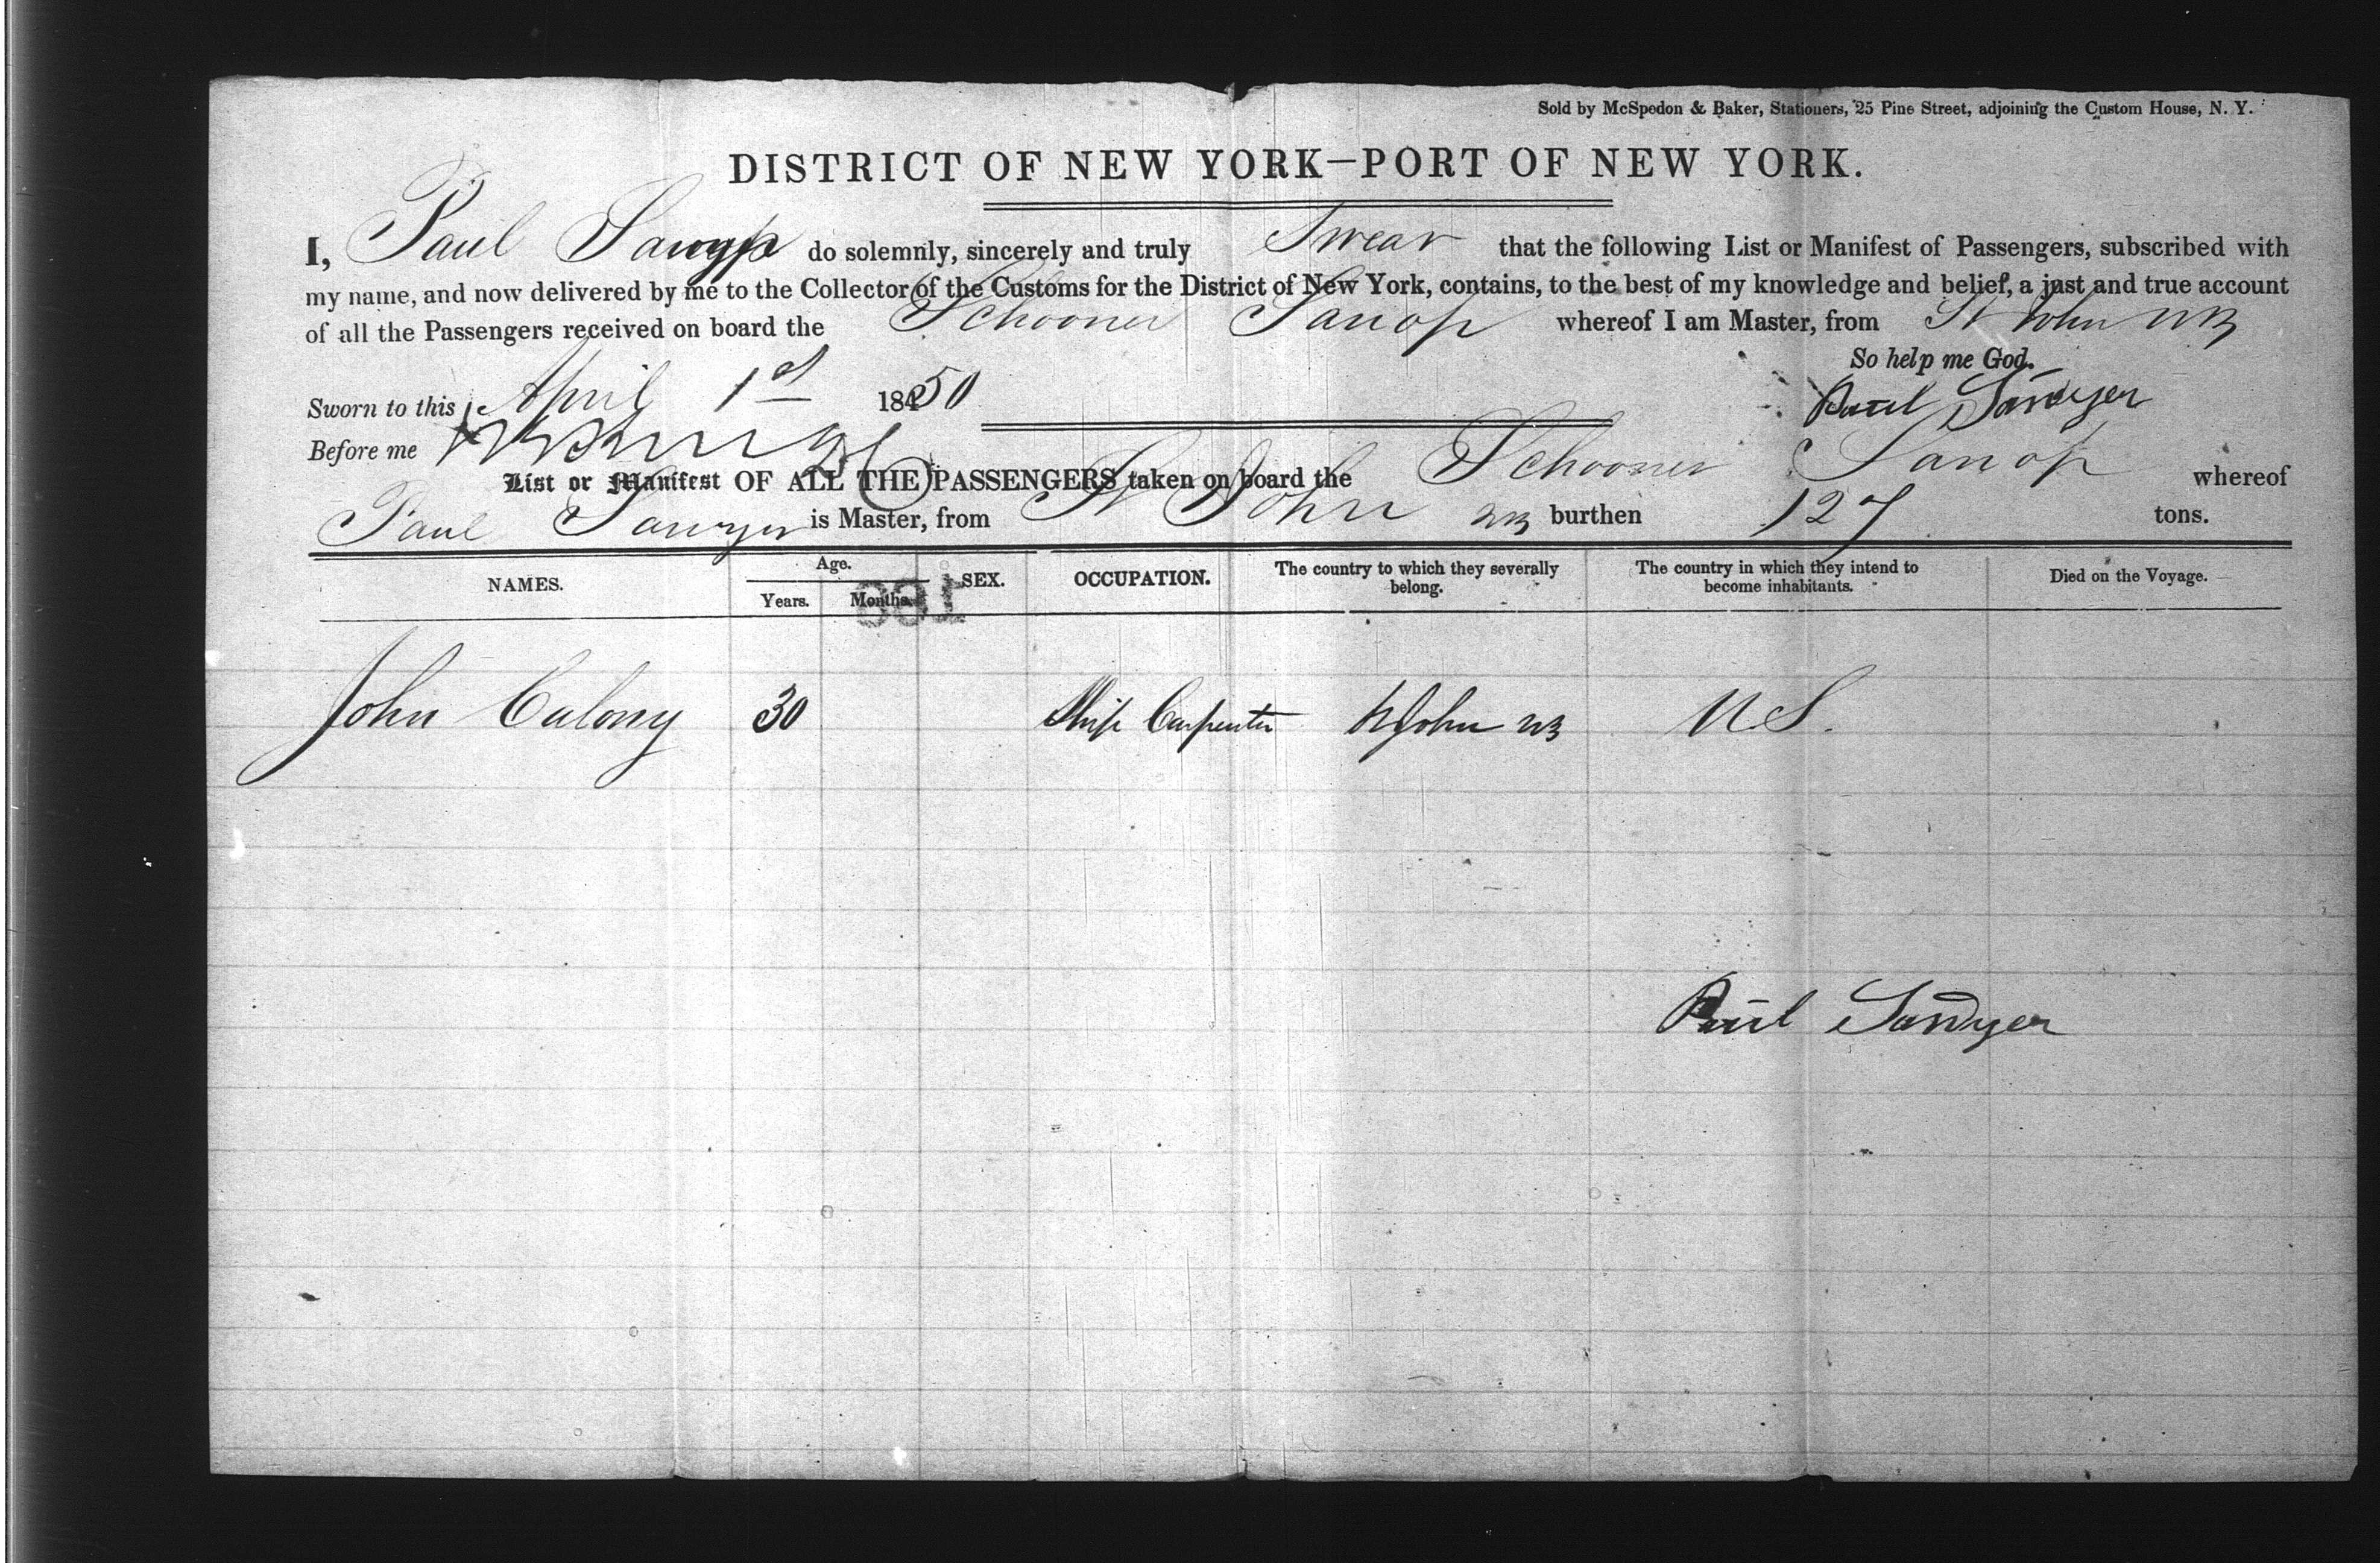 Sold by McSpedon & Baker, Stationers, 25 Pine Street, adjoining the Custom House, N. Y.
DISTRICT OF NEW YORK—PORT OF NEW YORK.
I, Paul Sawyer do solemnly, sincerely and truly Swear that the following List or Manifest of Passengers, subscribed with
my name, and now delivered by me to the Collector of the Customs for the District of New York, contains, to the best of my knowledge and belief, a just and true account
of all the Passengers received on board the Schooner Sanop whereof I am Master, from St John NB
So help me God.
Sworn to this April 1st 1850 Paul Sawyer
Before me
List or Manifest OF ALL THE PASSENGERS taken on board the Schooner Sanop whereof
Paul Sawyer is Master, from St John NB burthen 127 tons.
NAMES. Age. Years. Months. SEX. OCCUPATION. The country to which they severally belong. The country in which they intend to become inhabitants. Died on the Voyage.
John 30 Ship Carpenter St John NB U S.
Paul Sawyer